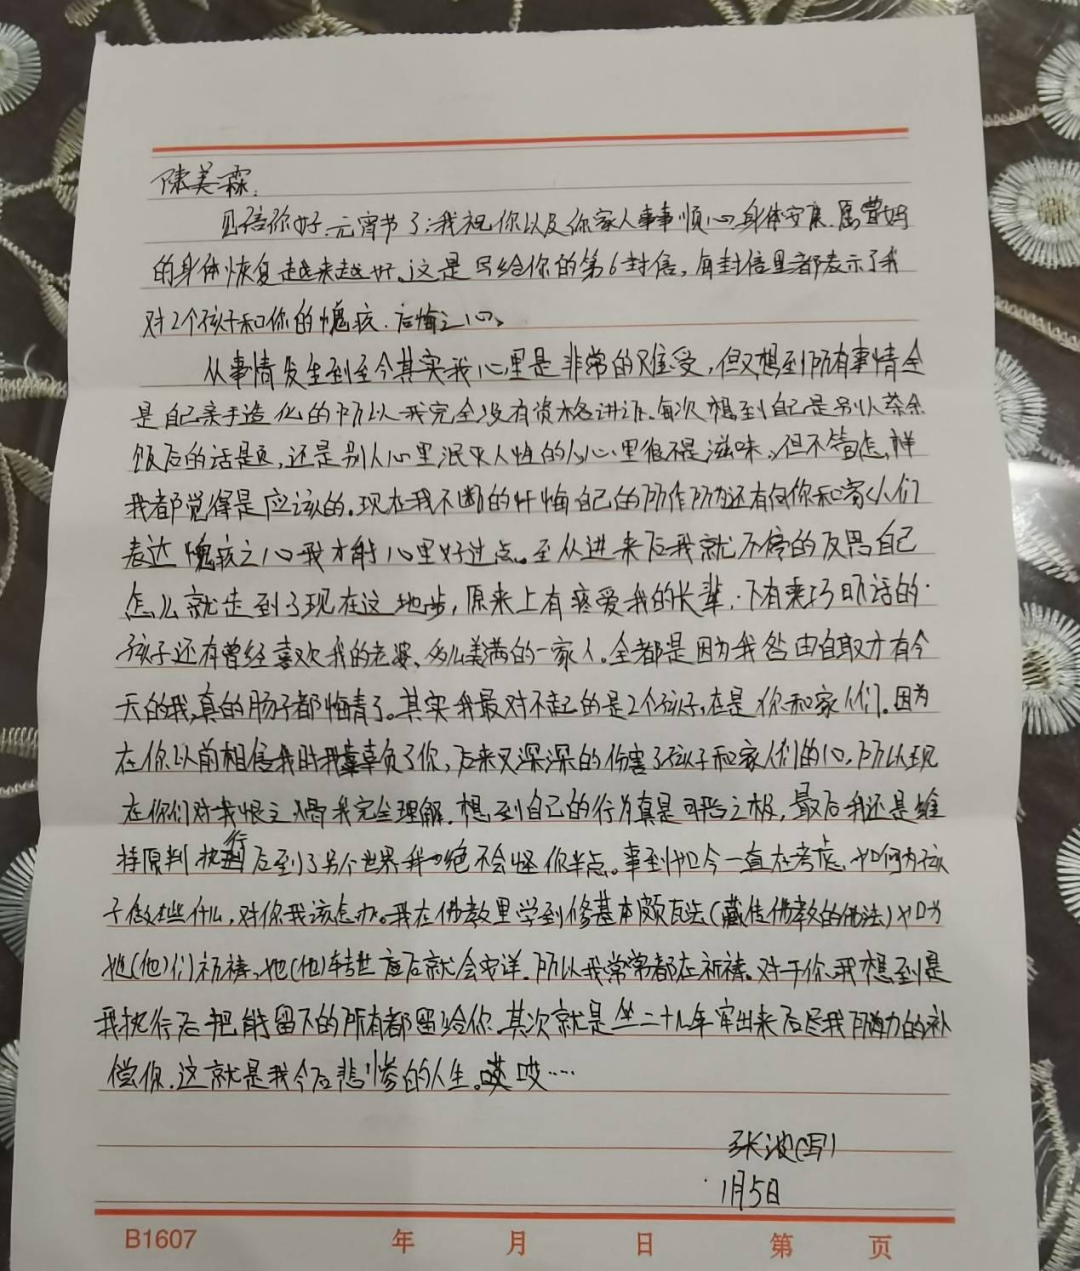 陈美霖:
见信你好.元宵节了;我祝你以及你家人事事顺心.身体安康.愿曹妈
的身体恢复越来越好。这是写给你的第6封信，每封信里都表示了我
对2个孩子和你的愧疚.后悔之心。
从事情发生到至今其实我心里是非常的难受，但又想到所有事情全
是自己亲手造化的所以我完全没有资格讲诉.每次想到自己是别人茶余
饭后的话题，还是别人心里泯灭人性的人心里很不是滋味。但不管怎样
我都觉得是应该的。现在我不断的忏悔自己的所作所为还有向你和家人们
表达愧疚之心我才能心里好过点。至从进来后我就不停的反思自己
怎么就走到了现在这地步，原来上有疼爱我的长辈.下有乖巧听话的
孩子还有曾经喜欢我的老婆、多么美满的一家人。全都是因为我咎由自取才有今
天的我，真的肠子都悔青了。其实我最对不起的是2个孩子，在是你和家人们。因为
在你以前相信我时我辜负了你，后来又深深的伤害了孩子和家人们的心.所以现
在你们对我恨之 我完全理解.想到自己的行为真是可恶之极，最后我还是维
持原判执行后到了另个世界我也绝不会怪你半点。事到如今一直在考虑.如何为孩
子做些什么，对你我该怎办。我在佛教里学到修基本颇瓦法(藏传佛教的佛法)如为
她(他)们祈祷.她(他)转世 后就会安详.所以我常常都在祈祷.对于你.我想到是
我执行后把能留下的所有都留给你.其次就是坐二十几年牢出来后尽我所能力的补
偿你.这就是我今后悲惨的人生。哎哎……
张波(写)
1月5日
B1607 年 月 日 第 页